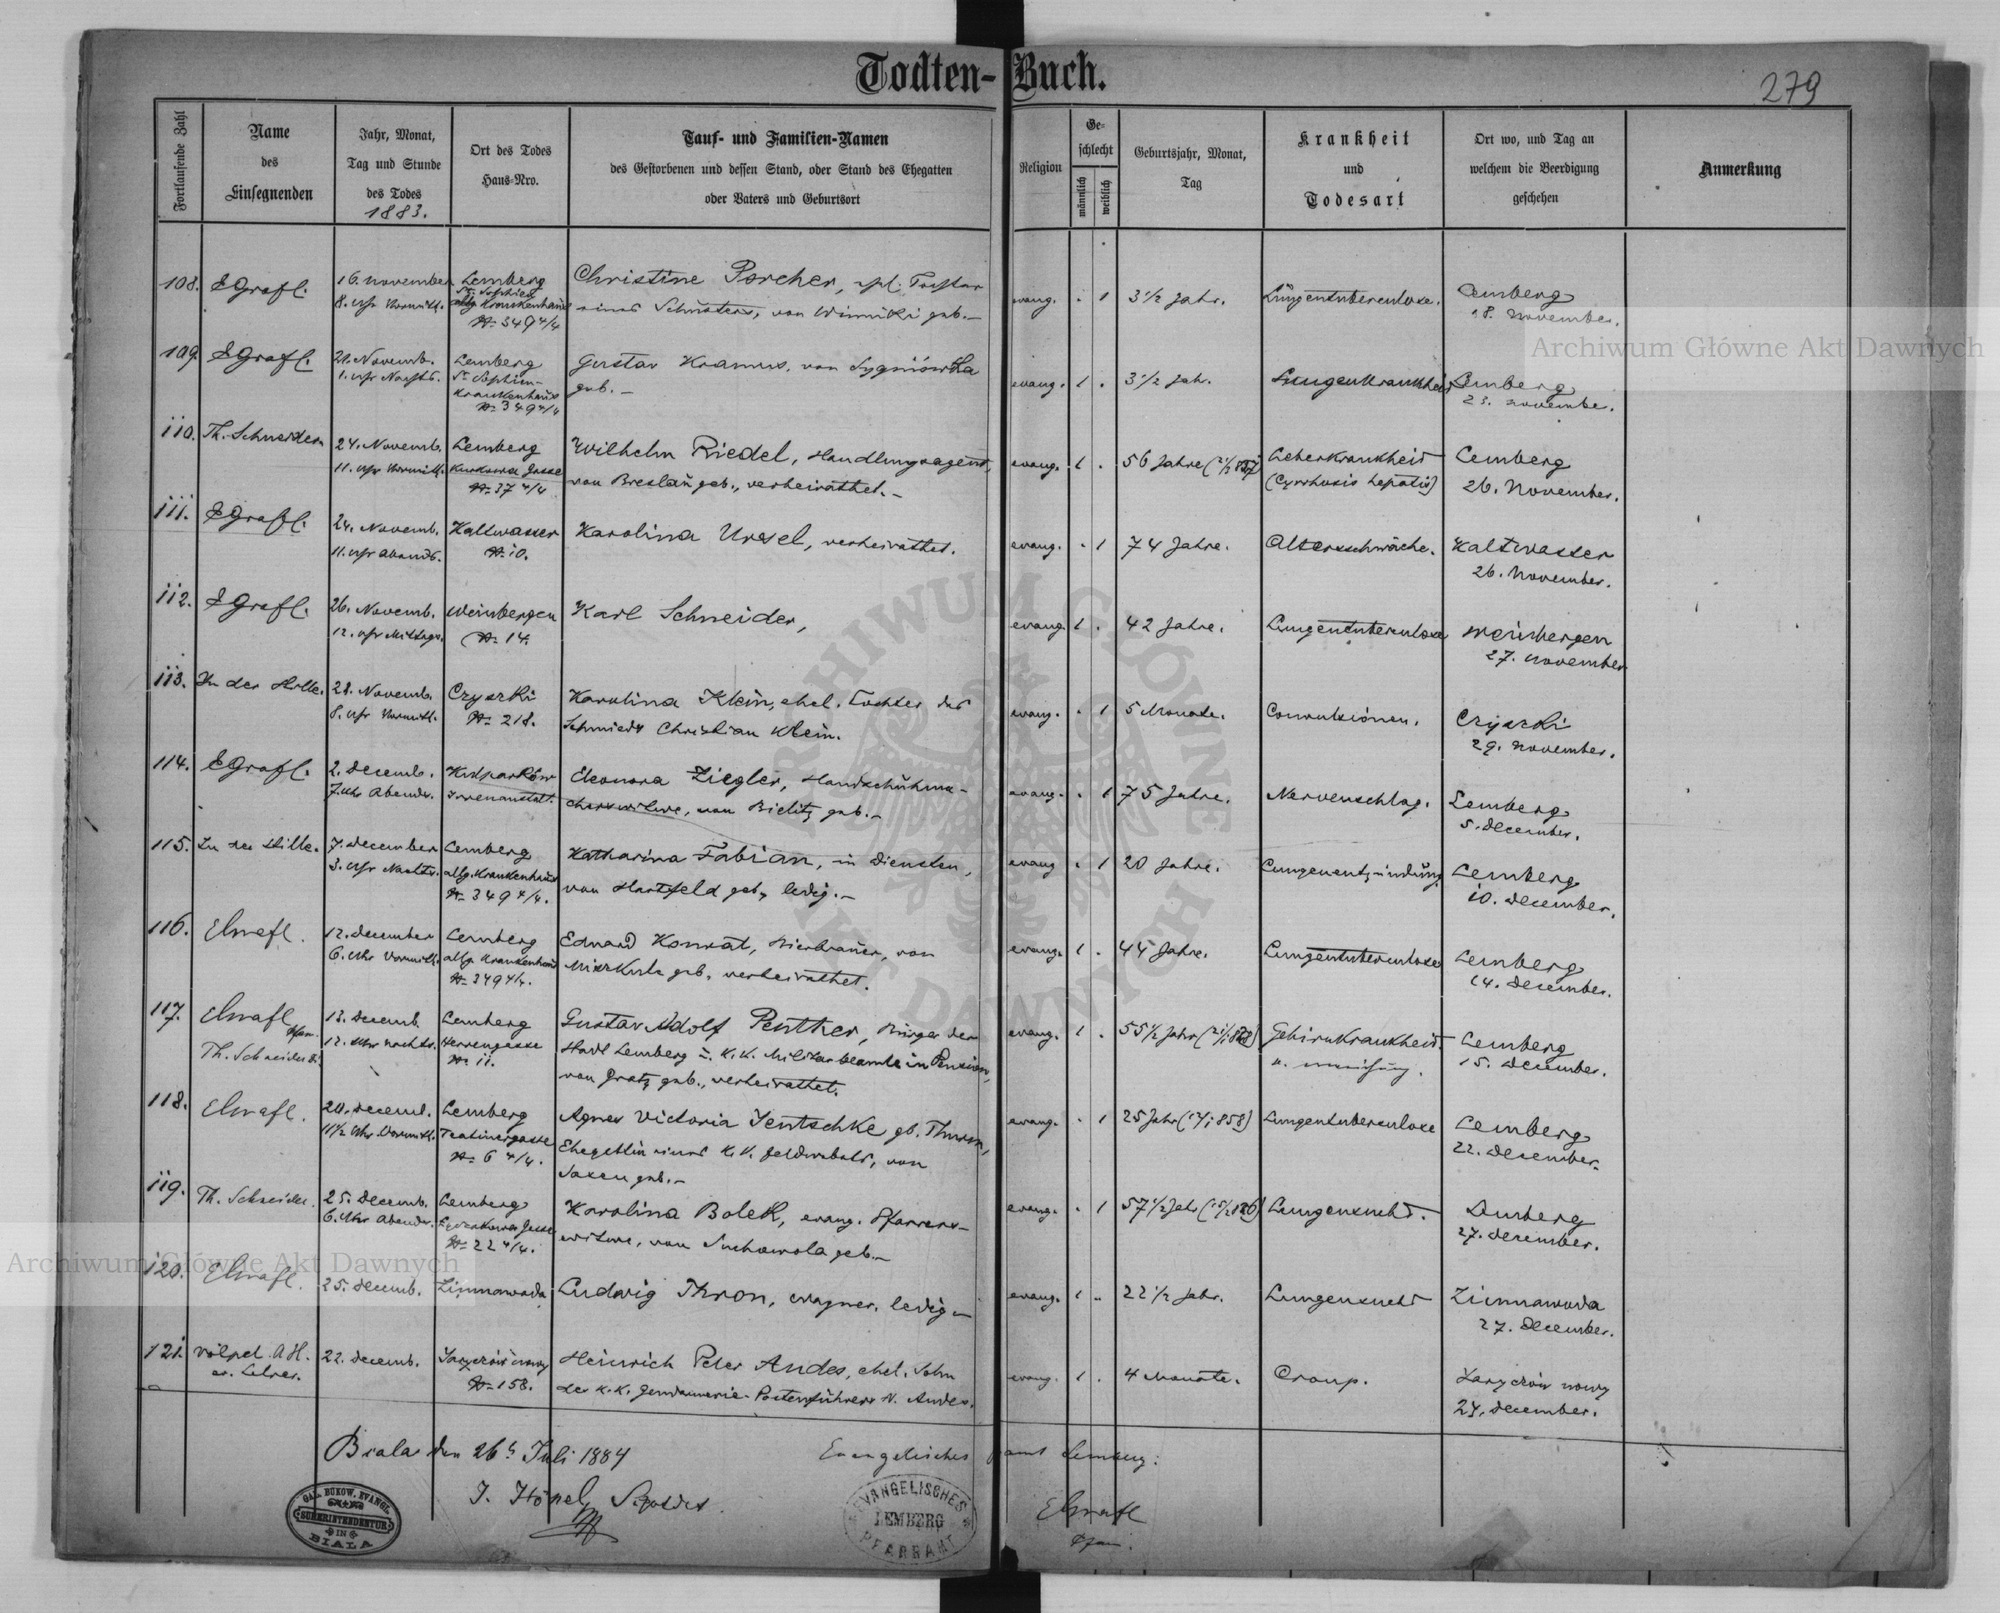 Todten-Buch.
279
Fortlaufende Zahl
Name
des
Einsegnenden
Jahr, Monat,
Tag und Stunde
des Todes
1883.
Ort des Todes
Haus-Nro.
Tauf- und Familien-Namen
des Gestorbenen und dessen Stand, oder Stand des Ehegatten
oder Vaters und Geburtsort
Religion
Ge-
schlecht
männlich
weiblich
Geburtsjahr, Monat,
Tag
Krankheit
und
Todesart
Ort wo, und Tag an
welchem die Beerdigung
geschehen
Anmerkung
108.
16. November
8. Uhr Vormitt.
Lemberg
St. Sophien
allg. Krankenhaus
No 349 4/4
Christine Porcher, ehl. Tochter
eines Schusters, von Winniki geb.–
evang. . 1
3 1/2 Jahr.
Lungentuberculose.
Lemberg
18. November.
109.
21. Novemb.
1. Uhr Nachts.
Lemberg
St. Sophien-
Krankenhaus
No 349 4/4
Gustav Kramus, von
geb. –
evang. 1 .
3 1/2 Jahr.
Lungenkrankheit
Lemberg
23. November.
110.
Th. Schneider
24. Novemb.
11. Uhr Vormitt.
Lemberg
Kurkowa Gasse
No 37 4/4
Wilhelm Riedel, Handlungsagent,
von Breslau geb., verheirathet. –
evang. 1 .
56 Jahre
Leberkrankheit
(Cyrrhosis hepatis)
Lemberg
26. November.
111.
24. Novemb.
11. Uhr Abends.
Kaltwasser
No 10.
Karolina Ursel, verheirathet.
evang. . 1
74 Jahre.
Altersschwäche.
Kaltwasser
26. November.
112.
26. Novemb.
12. Uhr Mittags.
Weinbergen
No 14.
Karl Schneider,
evang. 1 .
42 Jahre.
Lungentuberculose
Weinbergen
27. November
113.
In der Stille.
28. Novemb.
8. Uhr Vormitt.
Czyszki
No 218.
Karolina Klein, ehel. Tochter des
Schmieds Christian Klein.
evang. . 1
5 Monate.
Convulsionen.
Czyszki
29. November.
114.
2. Decemb.
7. Uhr Abends.
Kulparków
Irrenanstalt.
Eleonora Ziegler, Handschuhma-
cherswitwe, von Bielitz geb. –
evang. . 1
75 Jahre.
Nervenschlag.
Lemberg
5. December.
115.
In der Stille.
7. December
3. Uhr Nachts.
Lemberg
allg. Krankenhaus
No 349 4/4.
Katharina Fabian, in Diensten,
von Hartfeld geb., ledig. –
evang . 1
20 Jahre.
Lungenentzündung
Lemberg
10. December.
116.
12. December
6. Uhr Vormitt.
Lemberg
allg. Krankenhaus
No 349 4/4.
Eduard Konrat, Bierbrauer, von
geb. verheirathet.
evang. 1 .
44 Jahre.
Lungentuberculose
Lemberg
14. December.
117.
Th. Schneider
13. Decemb.
12. Uhr Nachts.
Lemberg
Herrengasse
No 11.
Gustav Adolf Penther, Bürger der
Stadt Lemberg u. k. k. Militärbeamte in Pension,
von Gratz geb., verheirathet.
evang. 1 .
55 1/2 Jahr
Gehirnkrankheit.
Lemberg
15. December.
118.
20. Decemb.
11 1/2 Uhr Vormitt.
Lemberg
Teatinergasse
No 6 4/4.
Agnes Victoria Jentschke gb. Thurm,
Ehegattin eines k. k. Feldwebels, von
Saxen geb. –
evang. . 1
25 Jahr
Lungentuberculose
Lemberg
22. December.
119.
Th. Schneider.
25. Decemb.
6. Uhr Abends.
Lemberg
Łyczakower Gasse
No 22 4/4.
Karolina Bolek, evang. Pfarrers-
witwe, von Suchowola geb. –
evang. . 1
57 1/2 Jahr
Lungensucht.
Lemberg
27. December.
120.
25. Decemb.
Zimnawoda
Ludwig Thron, Wagner, ledig –
evang. 1 ..
22 1/2 Jahr.
Lungensucht
Zimnawoda
27. December.
121.
Völpel. Ad.
ev. Lehrer.
22. Decemb.
Jaryczów nowy
No 158.
Heinrich Peter Andes, ehel. Sohn
des k. k. Gendarmerie-Postenführers N. Andes.
evang. 1 .
4 Monate.
Croup.
Jaryczów nowy
24. December.
Biala den 26t Juli 1884
Evangelisches Lemberg.
J. Hönel
GAL. BUKOW. EVANGL.
SUPERINTENDENTUR
IN
BIALA
EVANGELISCHES
LEMBERG
PFARRAMT
Archiwum Główne Akt Dawnych
Archiwum Główne Akt Dawnych
ARCHIWUM GŁÓWNE AKT DAWNYCH